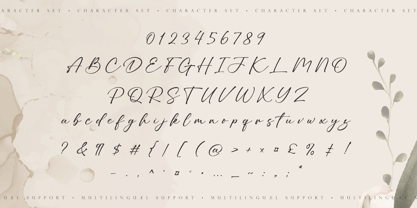 CHARACTER SET • CHARACTER SET • CHARACTER SET • CHARACTER SET • CHARACTER SET
0123456789
ABCDEFGHIJKLMNO
PQRSTUVWXYZ
abcdefghijklmnopqrstuvwxyz
? & $ # { / [ ( @ > + × ¤ £ % ‡ !
MULTILINGUEL SUPPORT • MULTILINGUEL SUPPORT • MULTILINGUEL SUPPORT